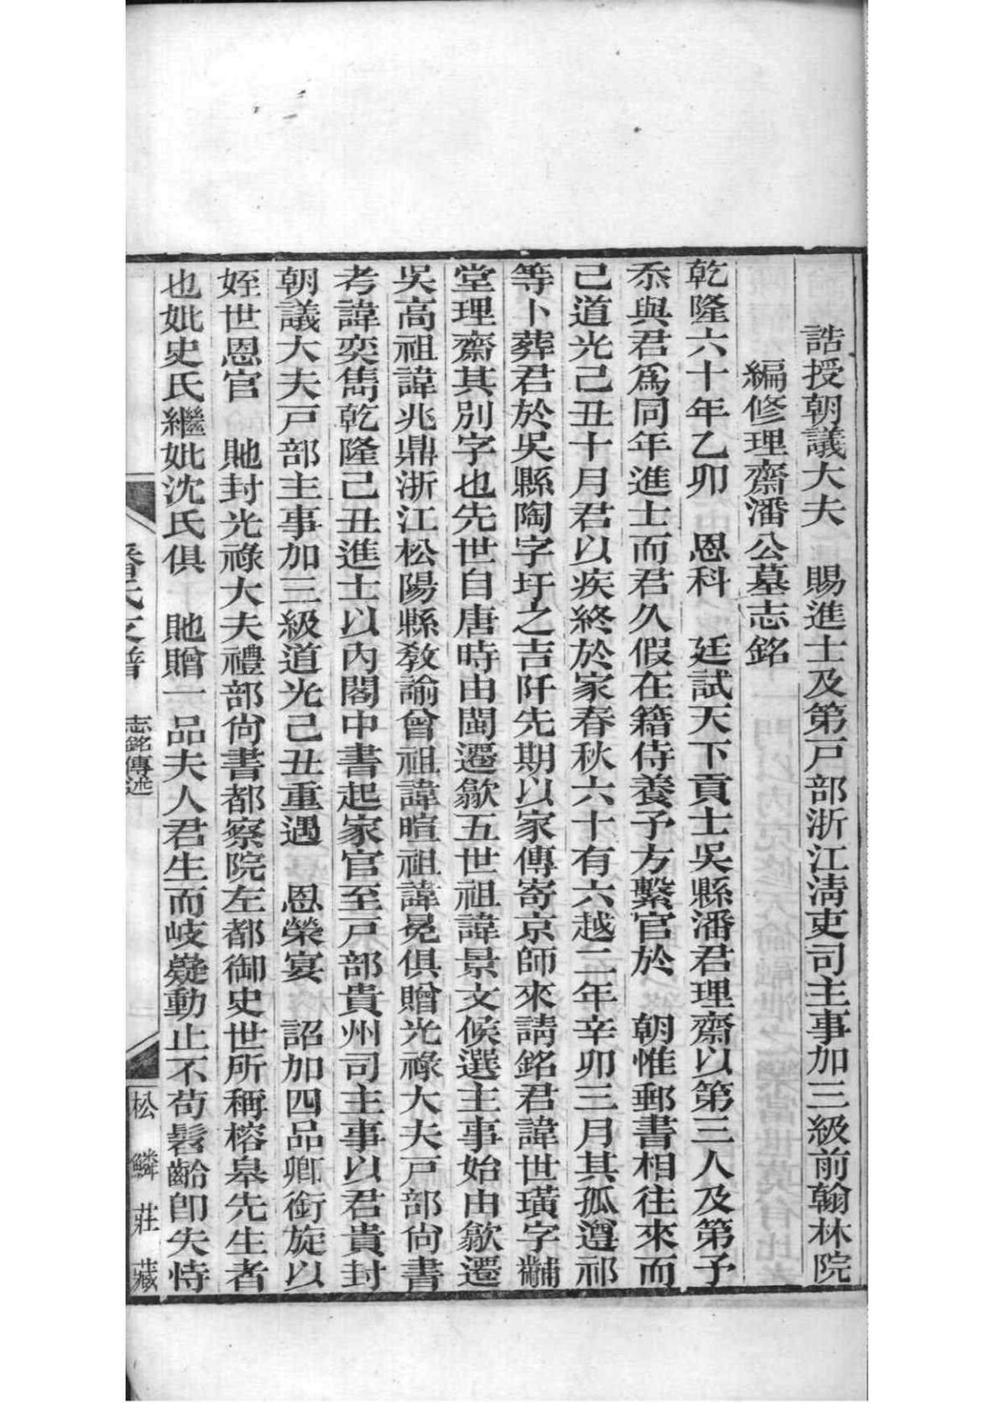 誥授朝議大夫　賜進士及第戸部浙江淸吏司主事加三級前翰林院
編修理齋潘公墓志銘
乾隆六十年乙卯　恩科　廷試天下貢士吳縣潘君理齋以第三人及第予
忝與君爲同年進士而君久假在籍侍養予方繫官於　朝惟郵書相往來而
己道光己丑十月君以疾終於家春秋六十有六越二年辛卯三月其孤遵祁
等卜葬君於吳縣陶字圩之吉阡先期以家傳寄京師來請銘君諱世璜字黼
堂理齋其別字也先世自唐時由閩遷歙五世祖諱景文候選主事始由歙遷
吳高祖諱兆鼎浙江松陽縣敎諭曾祖諱暄祖諱冕俱贈光祿大夫戸部尙書
考諱奕雋乾隆己丑進士以內閣中書起家官至戸部貴州司主事以君貴封
朝議大夫戸部主事加三級道光己丑重遇　恩榮宴　詔加四品卿銜旋以
姪世恩官　貤封光祿大夫禮部尙書都察院左都御史世所稱榕皋先生者
也妣史氏繼妣沈氏俱　貤贈一品夫人君生而岐嶷動止不苟髫齡卽失恃
潘氏文譜　志銘傳述
松鱗莊藏